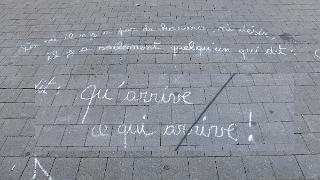 il n'y a pas de hasard, ni destin,
il y a seulement quelqu'un qui dit.
dit.
qu'arrive
ce qui arrive!
N